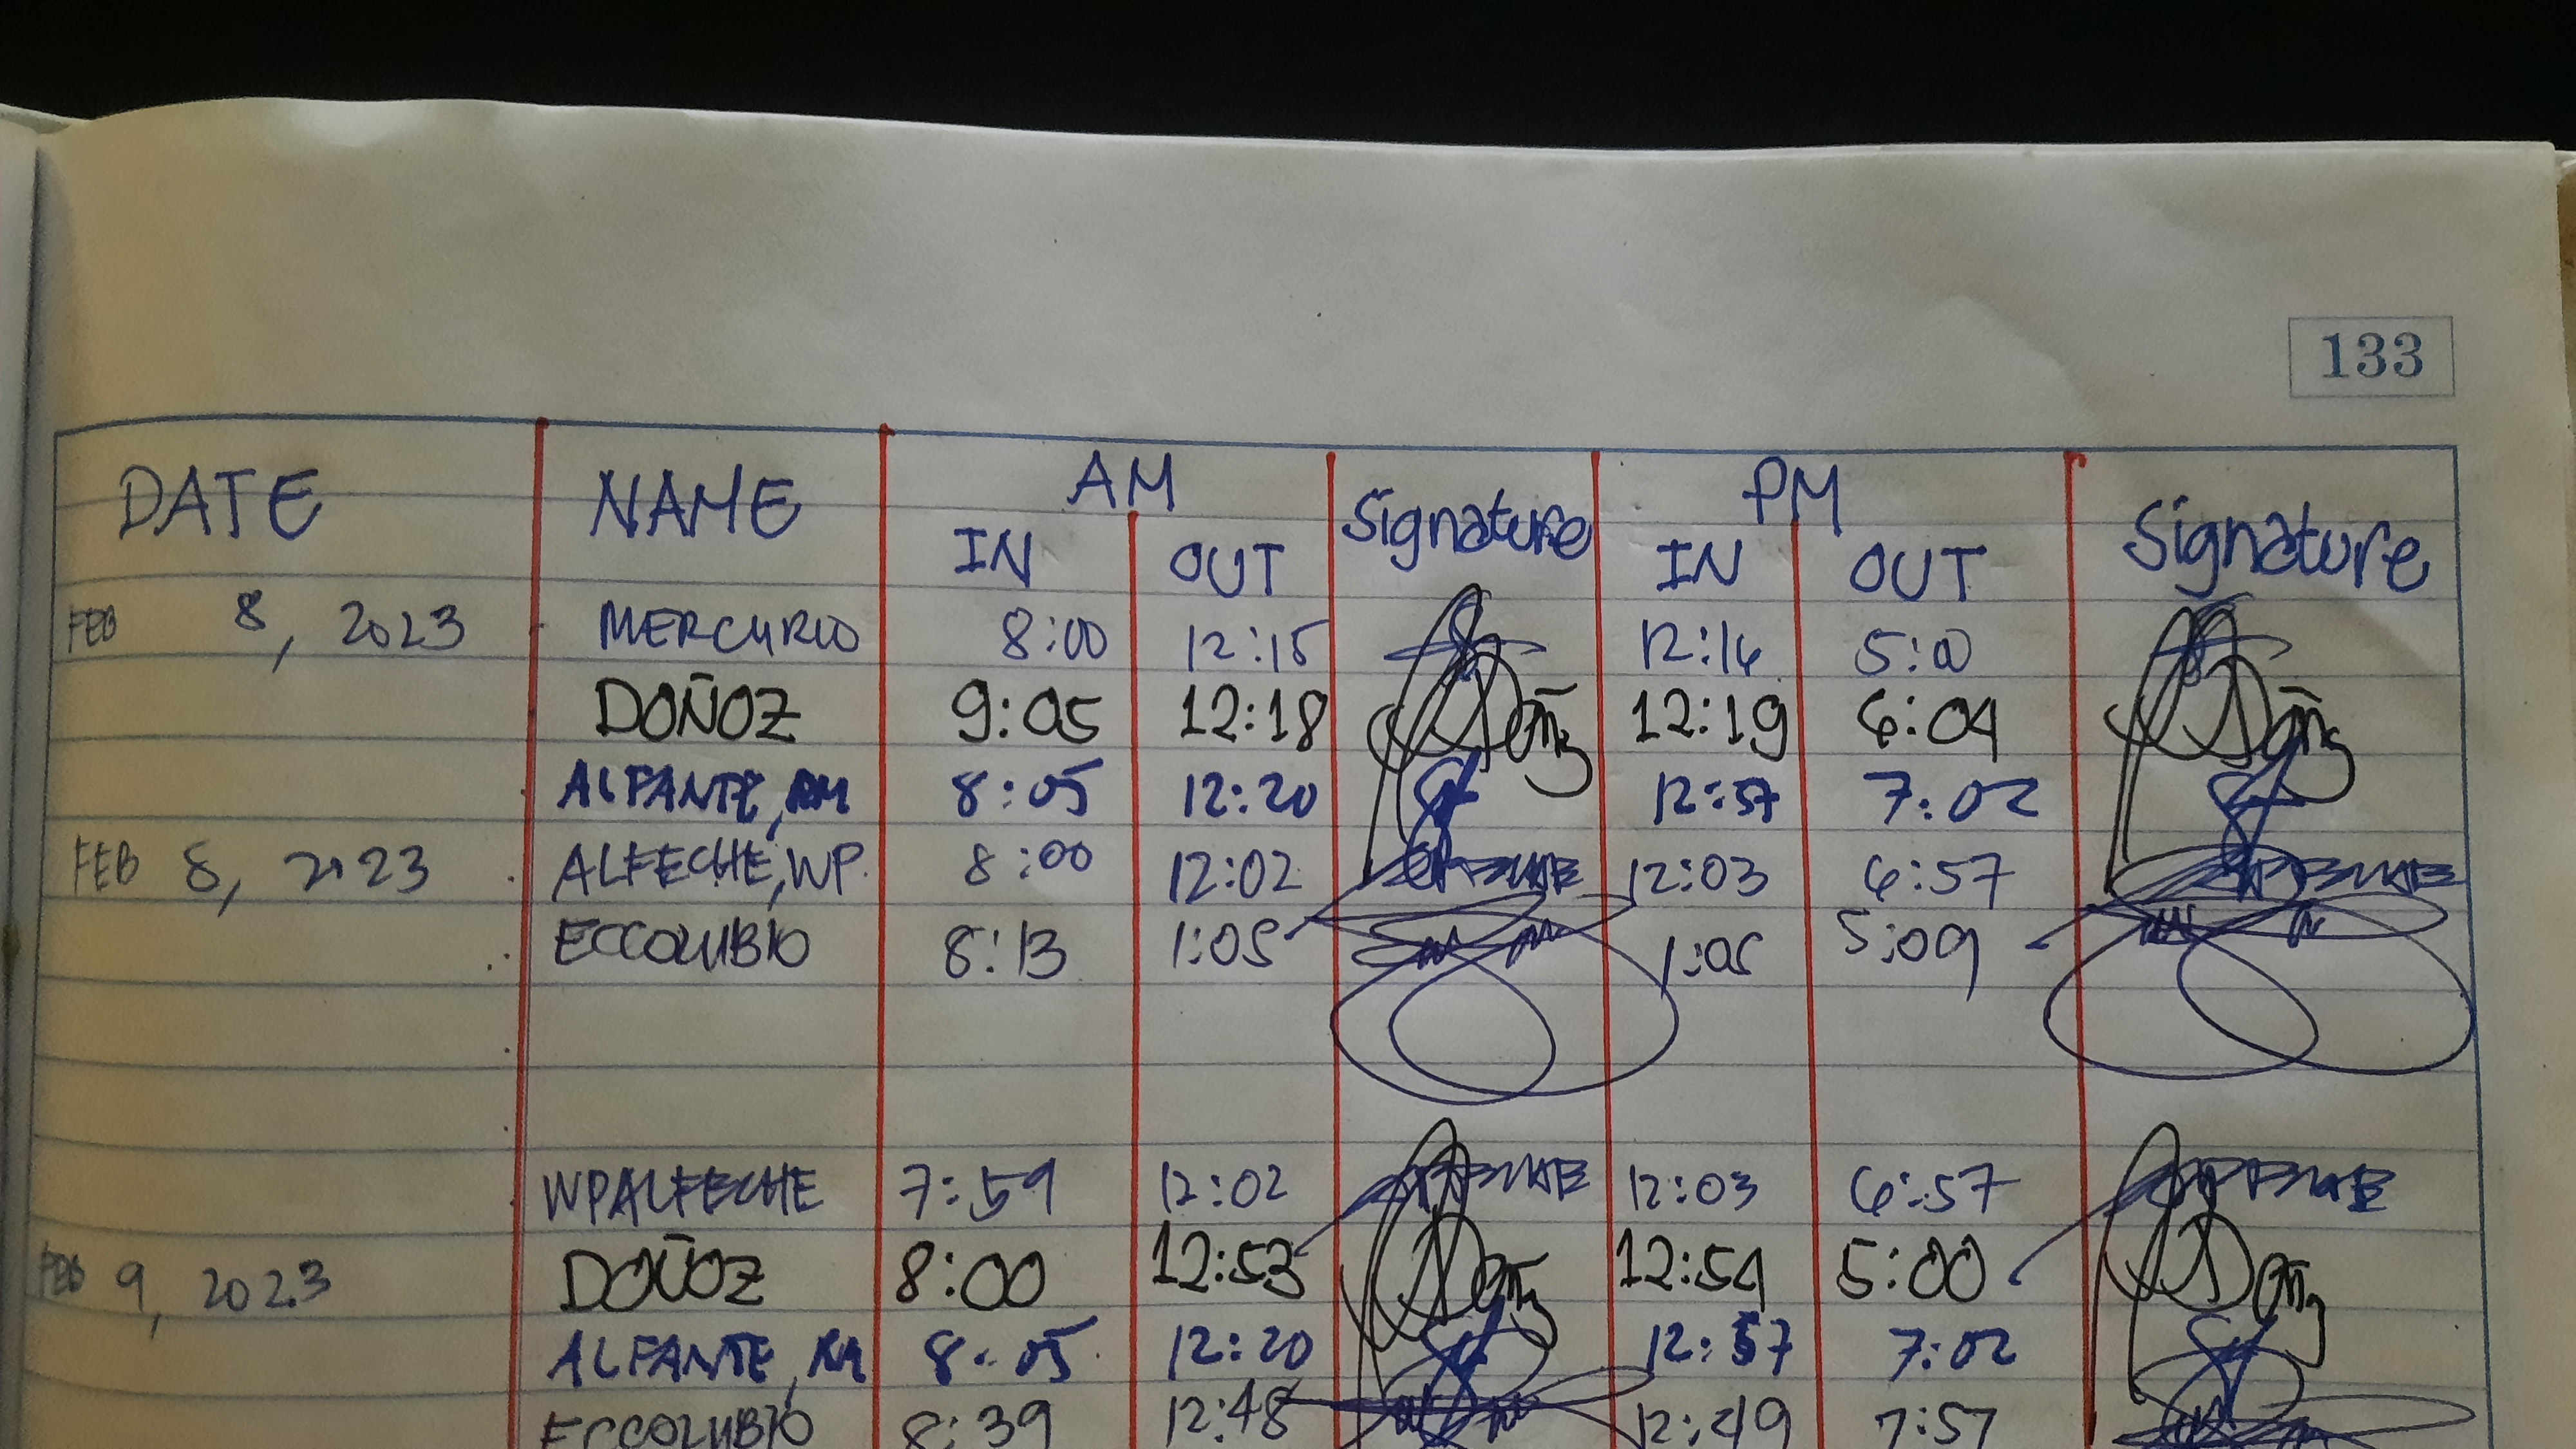 133
DATE NAME AM Signature PM Signature
IN OUT IN OUT
FEB 8, 2023 MERCURIO 8:00 12:15 12:16 5:00
DOÑOZ 9:05 12:18 12:19 6:04
ALFANTE, RM 8:05 12:20 12:57 7:02
FEB 8, 2023 ALFECHE, WP. 8:00 12:02 12:03 6:57
ECCOLUBIO 8:13 1:05 1:05 5:09
WPALFECHE 7:59 12:02 12:03 6:57
FEB 9, 2023 DOÑOZ 8:00 12:53 12:54 5:00
ALFANTE, RM 8:05 12:20 12:57 7:02
ECCOLUBIO 8:39 12:48 12:49 7:57